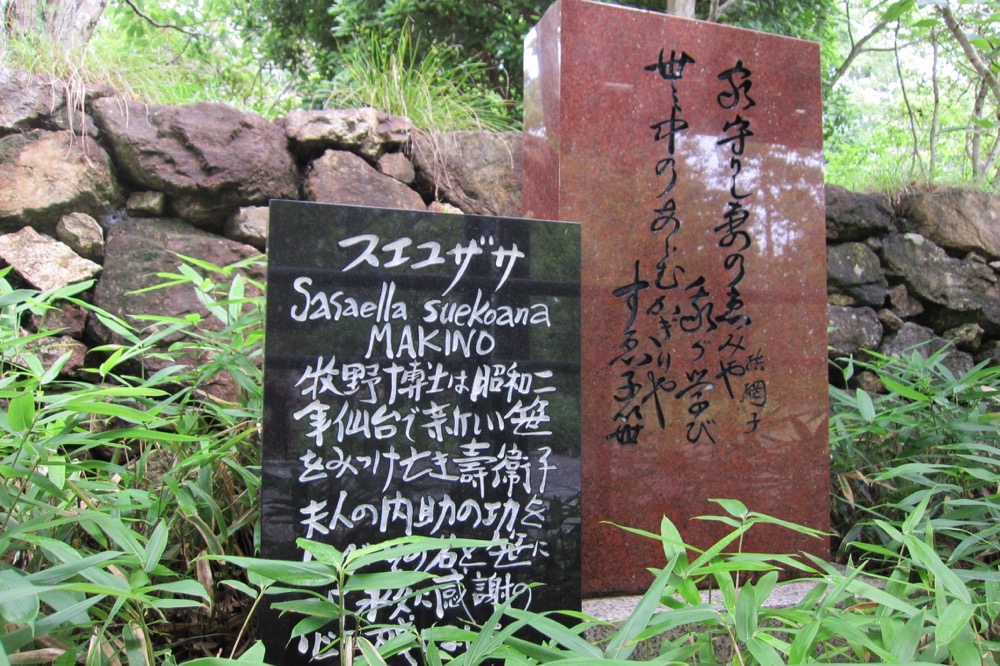 スエコザサ
Sasaella suekoana
MAKINO
牧野博士は昭和二
年仙台で新しい笹
をみつけ亡き壽衛子
夫人の内助の功を
の名を笹に
感謝の
家守りし妻の恵みや
我が学び
世の中のあらむかぎりや
すゑ子笹
結網子